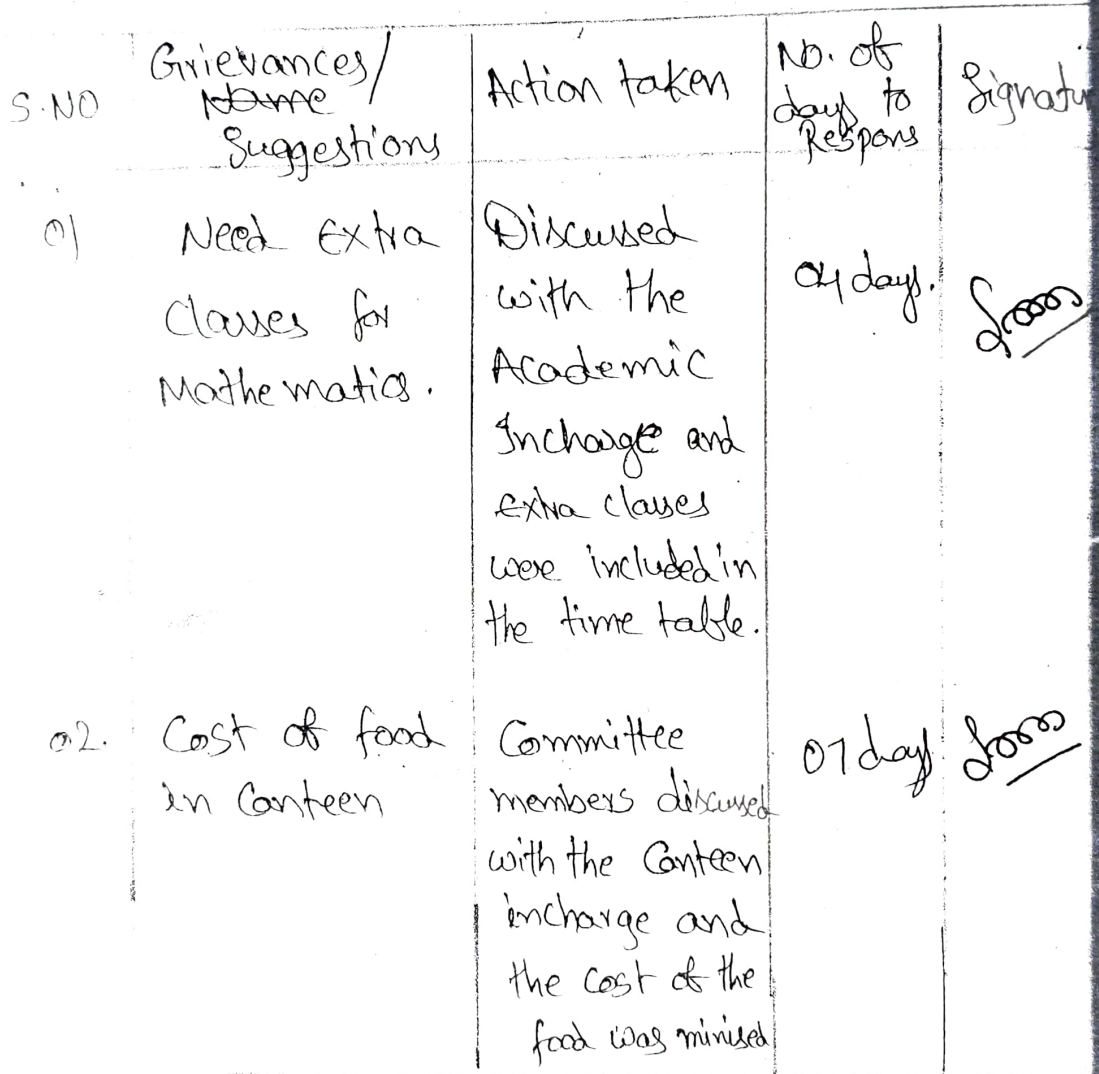 S.NO
Grievances/
Name
Suggestions
Action taken
No. of
days to
Respons
Signatu
01
Need Extra
Classes for
Mathematics.
Discussed
with the
Academic
Incharge and
Extra classes
were included in
the time table.
04 days.
02.
Cost of food
in Canteen
Committee
members discussed
with the Canteen
incharge and
the cost of the
food was minised
07 days